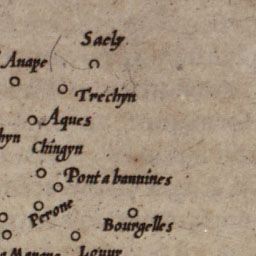 Saely
Anape
Trechyn
Aques
hyn
Chingyn
Pont a bannines
Perone
Bourgelles
Louur